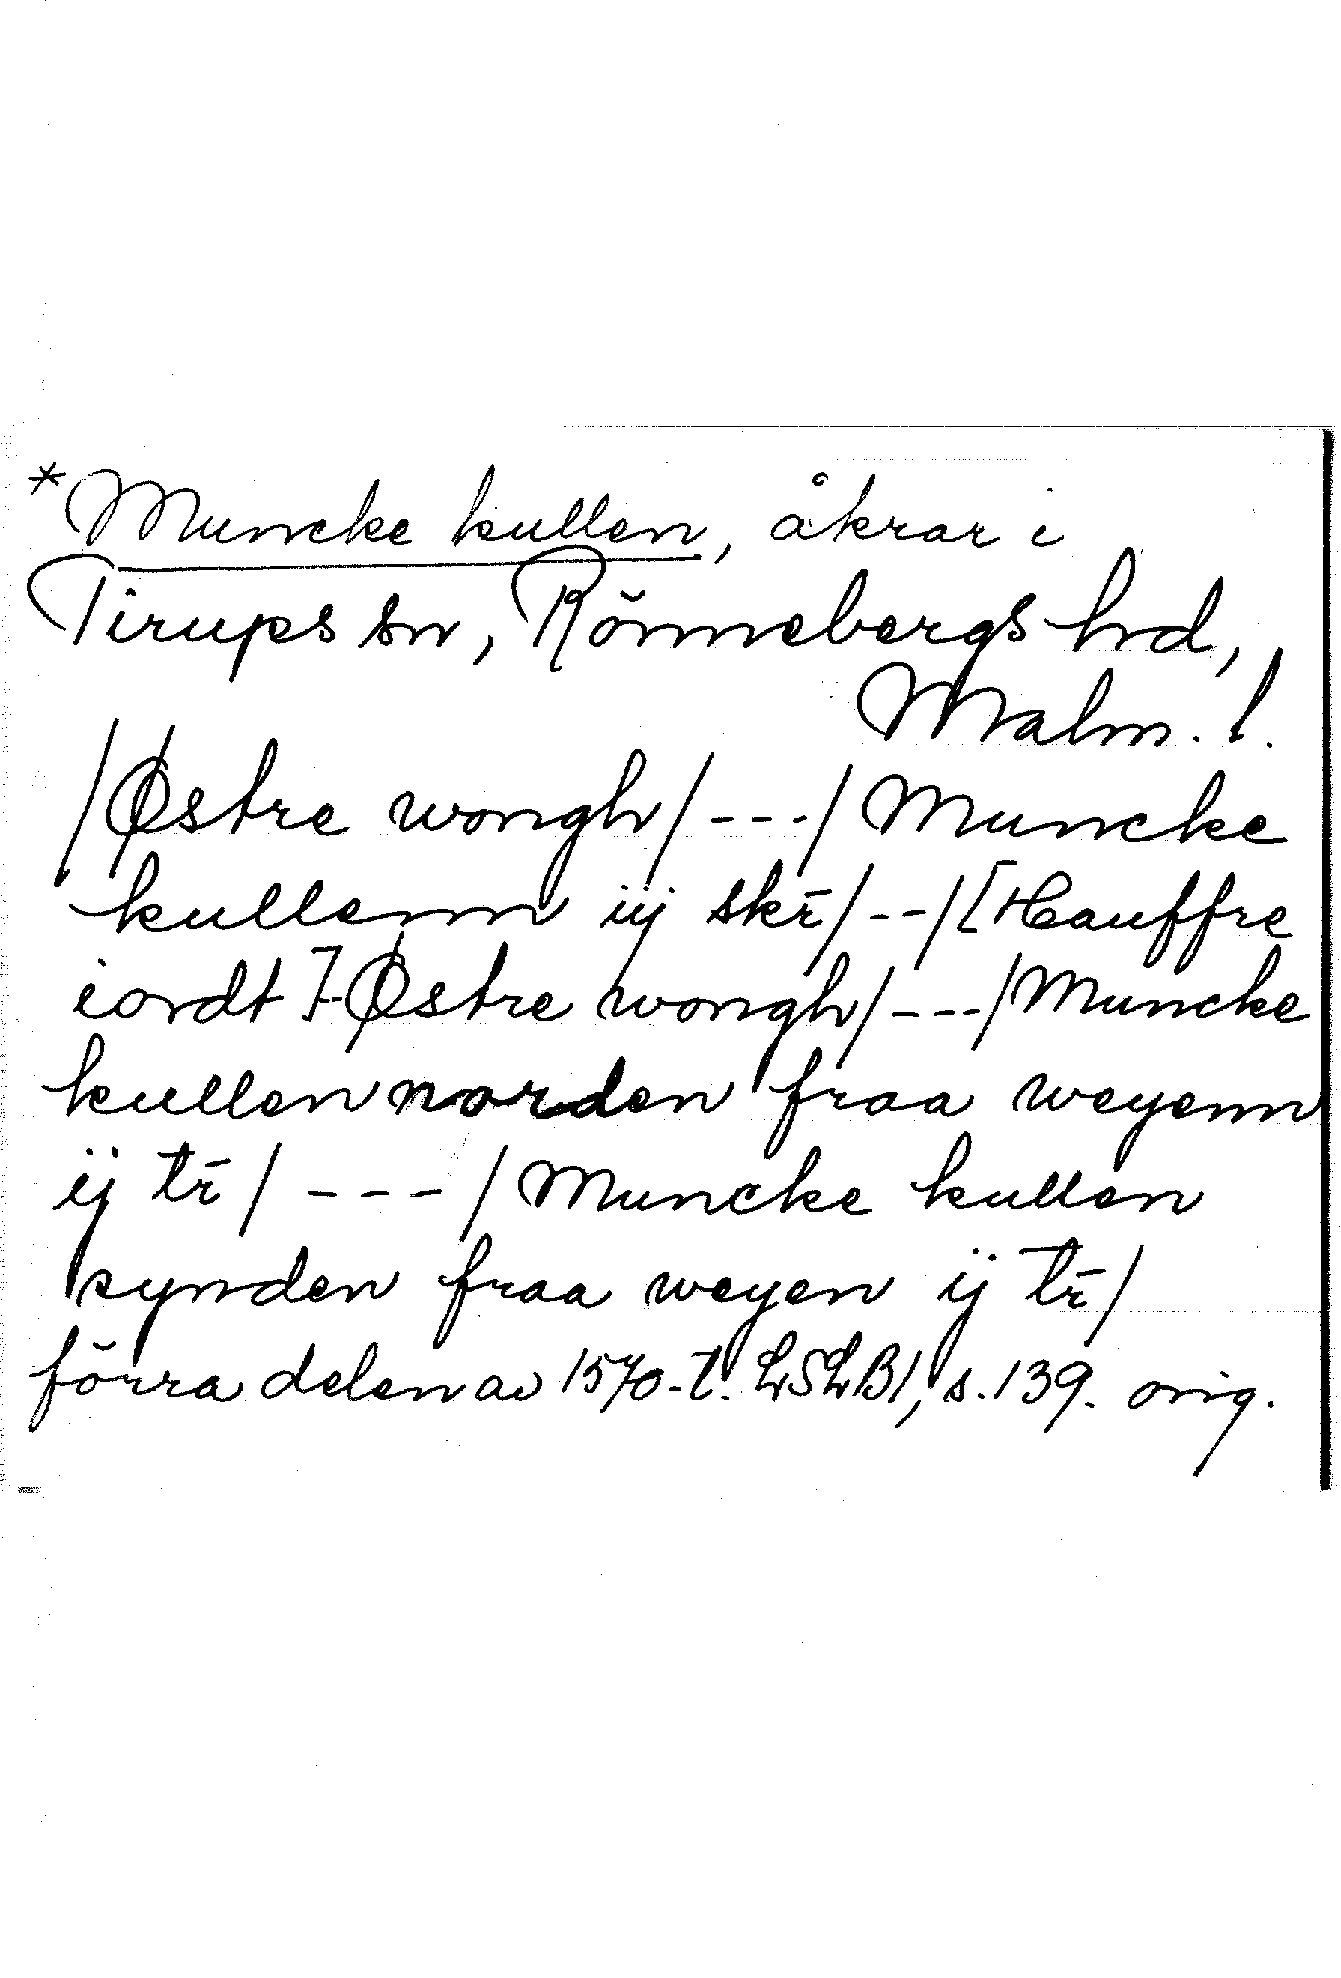 *Muncke kullen, åkrar i
Tirups sn, Rönnebergs hrd,
Malm. l.
/Østre wongh/---/Muncke
kullenn iij skr̄/--/[Hauffre
iordt]-Østre wongh/---/Muncke
kullen norden fraa weyenn
ij tr̄/---/Muncke kullen
synden fraa weyen ij tr̄/
förra delen av 1570-t. LSLB1, s. 139. orig.